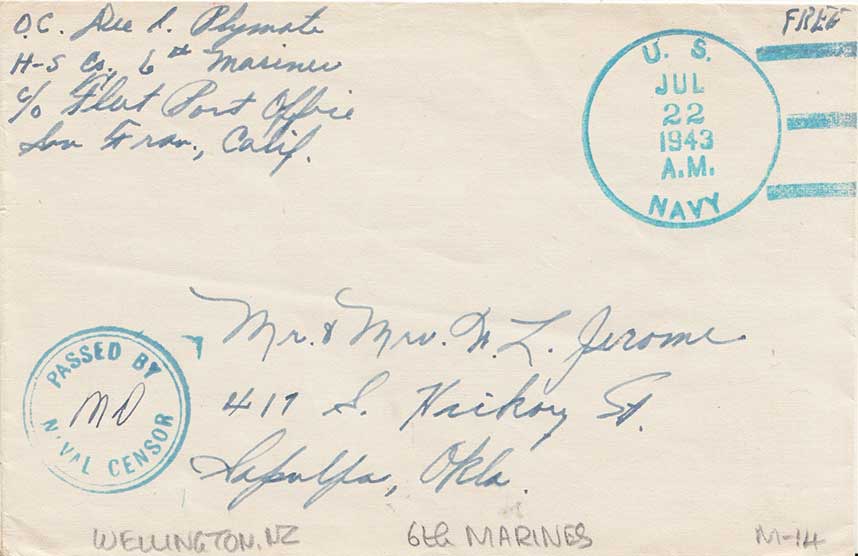 O.C. Dee S. Plymate
H-S Co, 6th Marines
c/o Fleet Post Office
San Fran., Calif.
FREE
U. S.
JUL
22
1943
A.M.
NAVY
Mr. & Mrs. W. L. Jerome
417 S. Hickory St.
Sapulpa, Okla.
PASSED BY
MD
NAVAL CENSOR
WELLINGTON, NZ
6th MARINES
M-14